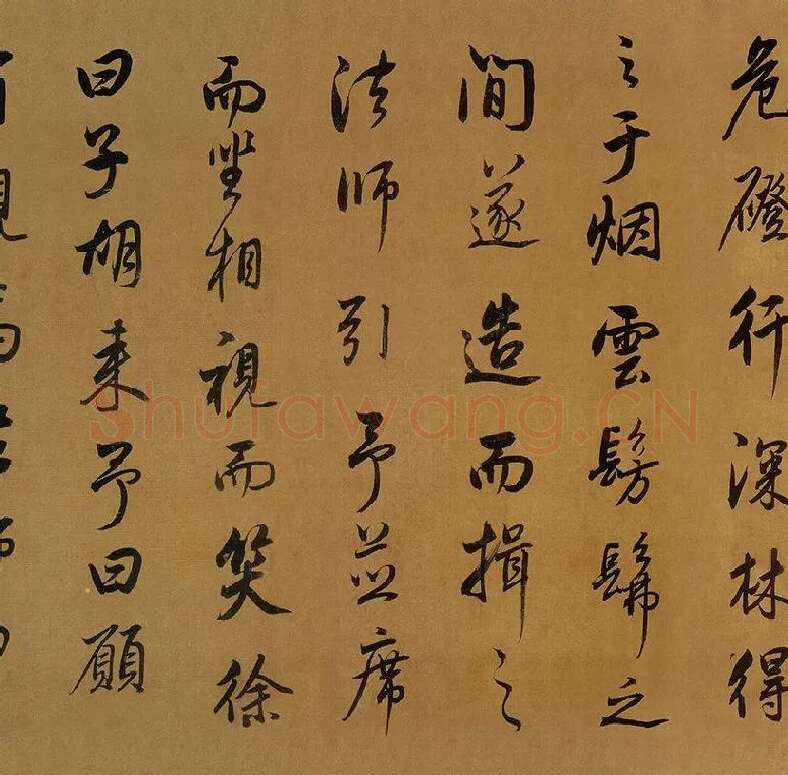 危磴行深林得
之于烟雲髣髴之
間遂造而揖之
法師引予並席
而坐相視而笑徐
曰子胡来予曰願
有觀焉
shufawang.CN